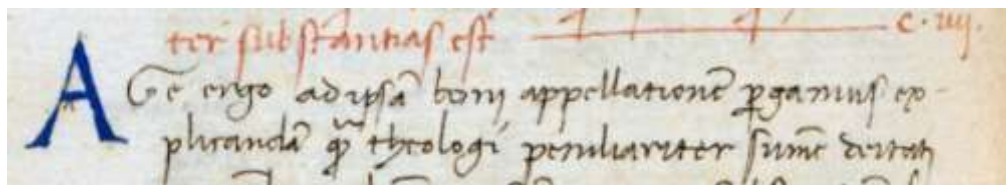 ter substantias est c. iiij.
AGe ergo ad ipsā boni appellationē ꝑgamus ex-
plicandā quā theologi peculiariter sumē deitati